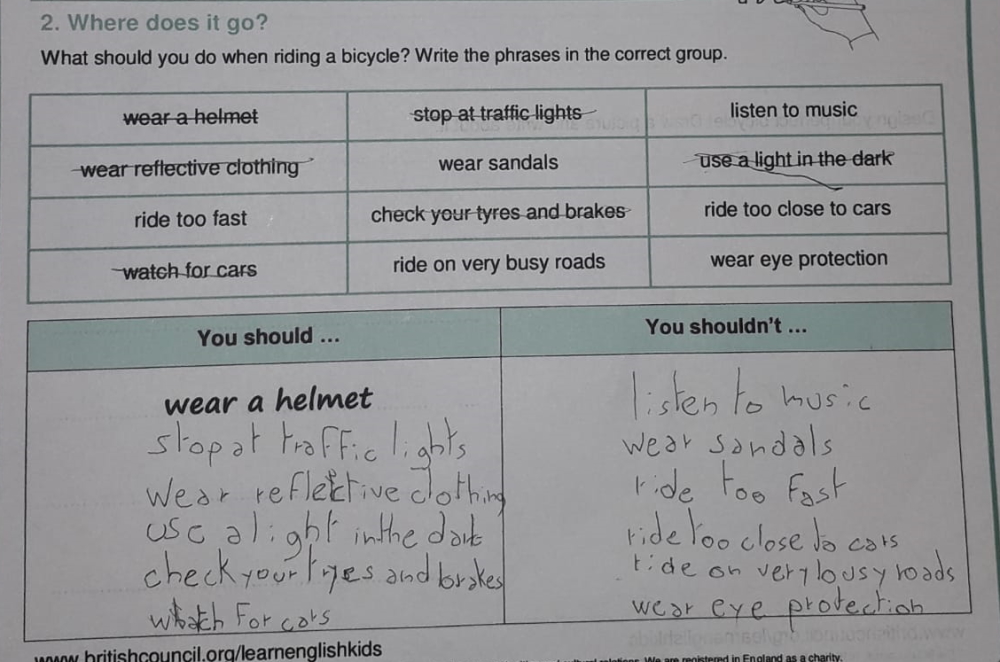 2. Where does it go?
What should you do when riding a bicycle? Write the phrases in the correct group.
wear a helmet stop at traffic lights listen to music
wear reflective clothing wear sandals use a light in the dark
ride too fast check your tyres and brakes ride too close to cars
watch for cars ride on very busy roads wear eye protection
You should ... You shouldn't ...
wear a helmet listen to music
stop at traffic lights wear sandals
wear reflective clothing ride too fast
use a light in the dark ride too close to cars
check your tyes and brakes ride on very busy roads
watch for cars wear eye protection
www.britishcouncil.org/learnenglishkids
We are registered in England as a charity.